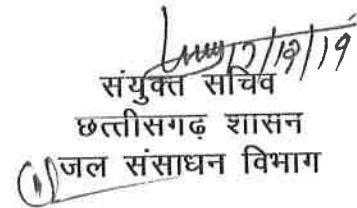 17/12/19
संयुक्त सचिव
छत्तीसगढ़ शासन
जल संसाधन विभाग